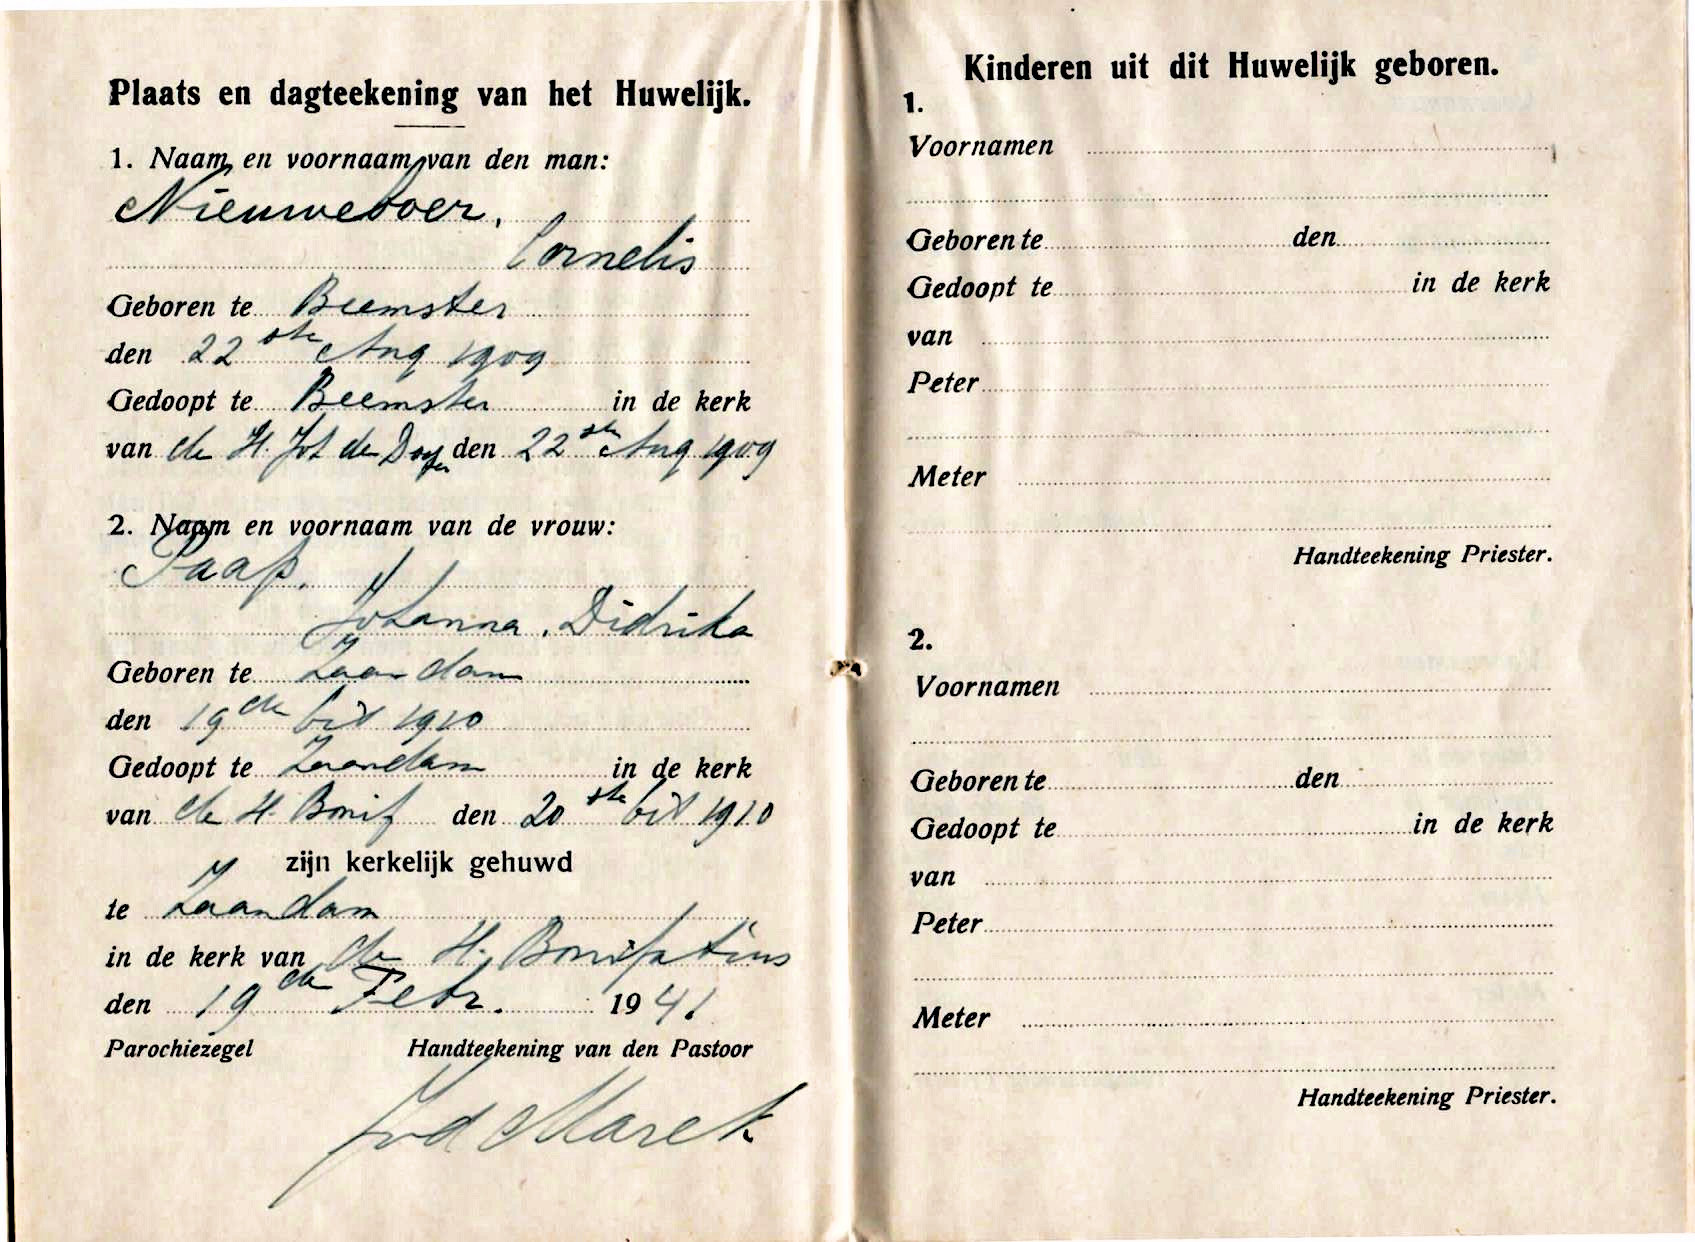 Plaats en dagteekening van het Huwelijk.
1. Naam en voornaam van den man:
Nieuweboer,
Cornelis
Geboren te Beemster
den 22ste Aug 1909
Gedoopt te Beemster in de kerk
van de H. Joh de Doper den 22ste Aug 1909
2. Naam en voornaam van de vrouw:
Paap.
Johanna. Didrika
Geboren te Zaandam
den 19de 1910
Gedoopt te Zaandam in de kerk
van de H. Bonif den 20ste 1910
zijn kerkelijk gehuwd
te Zaandam
in de kerk van de H. Bonifatius
den 19de Febr. 1941
Parochiezegel Handteekening van den Pastoor
Kinderen uit dit Huwelijk geboren.
1.
Voornamen
Geboren te den
Gedoopt te in de kerk
van
Peter
Meter
Handteekening Priester.
2.
Voornamen
Geboren te den
Gedoopt te in de kerk
van
Peter
Meter
Handteekening Priester.